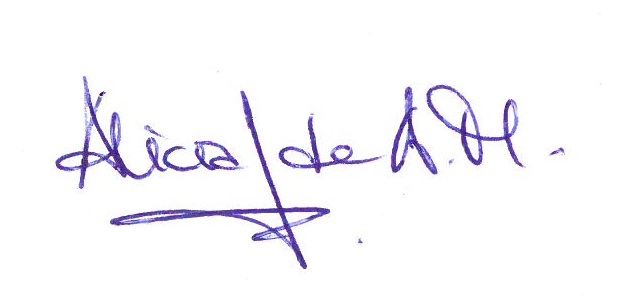 Alicia J de A.M.